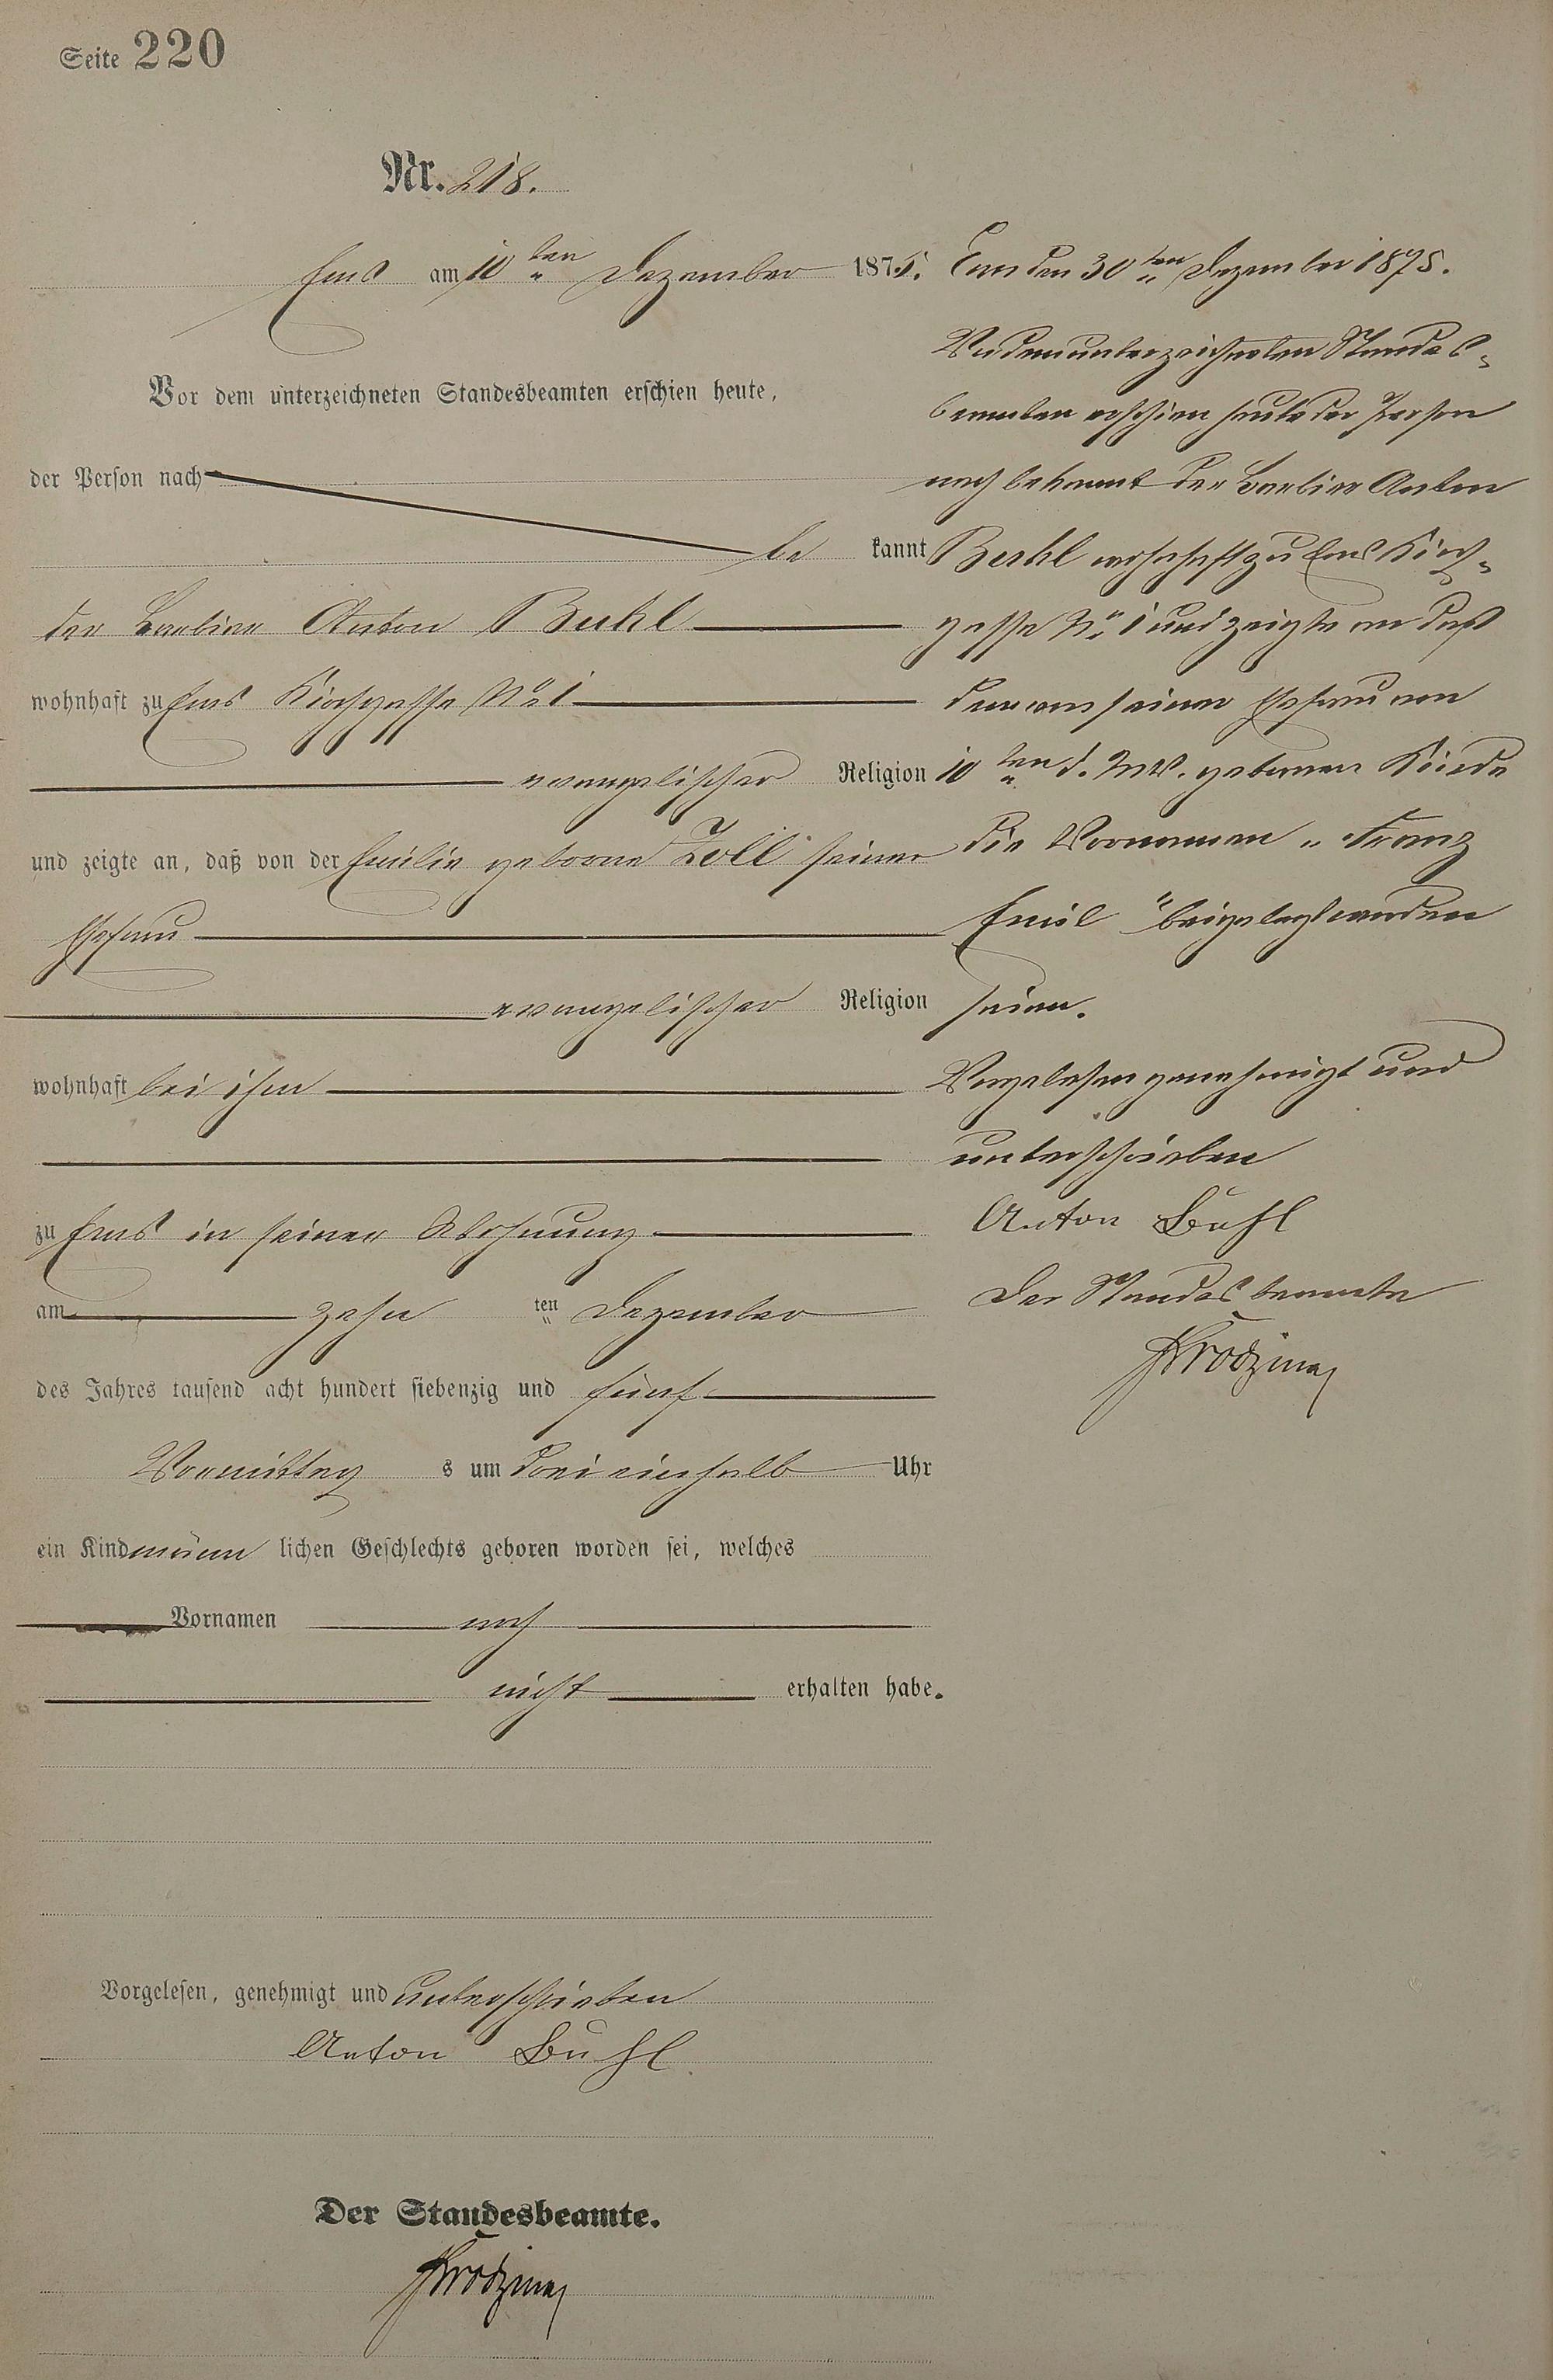 Seite 220
Nr. 218.
Ems am 10ten Dezember 1875.
Vor dem unterzeichneten Standesbeamten erschien heute,
der Person nach
be kannt
der Barbier Anton Buhl
wohnhaft zu Ems Kirchgasse No 1
evangelischer Religion
und zeigte an, daß von der Emilie geborne Zoll seiner
Ehefrau
evangelischer Religion
wohnhaft bei ihm
zu Ems in seiner Wohnung
am zehn ten Dezember
des Jahres tausend acht hundert siebenzig und fünf
Vormittag s um drei einhalb Uhr
ein Kind männ lichen Geschlechts geboren worden sei, welches
Vornamen noch
nicht erhalten habe.
Vorgelesen, genehmigt und unterschrieben
Anton Buhl
Der Standesbeamte.
Ems den 30ten Dezember 1875.
Vor dem unterzeichneten Standes-
beamten erschien heute der Person
nach bekannt der Barbier Anton
Buhl wohnhaft zu Ems Kirch-
gasse No 1 und zeigte an daß
dem von seiner Ehefrau am
10ten d. Mts. gebornen Kinde
die Vornamen „Franz
Emil" beigelegt worden
seien.
Vorgelesen genehmigt und
unterschrieben
Anton Buhl
Der Standesbeamte